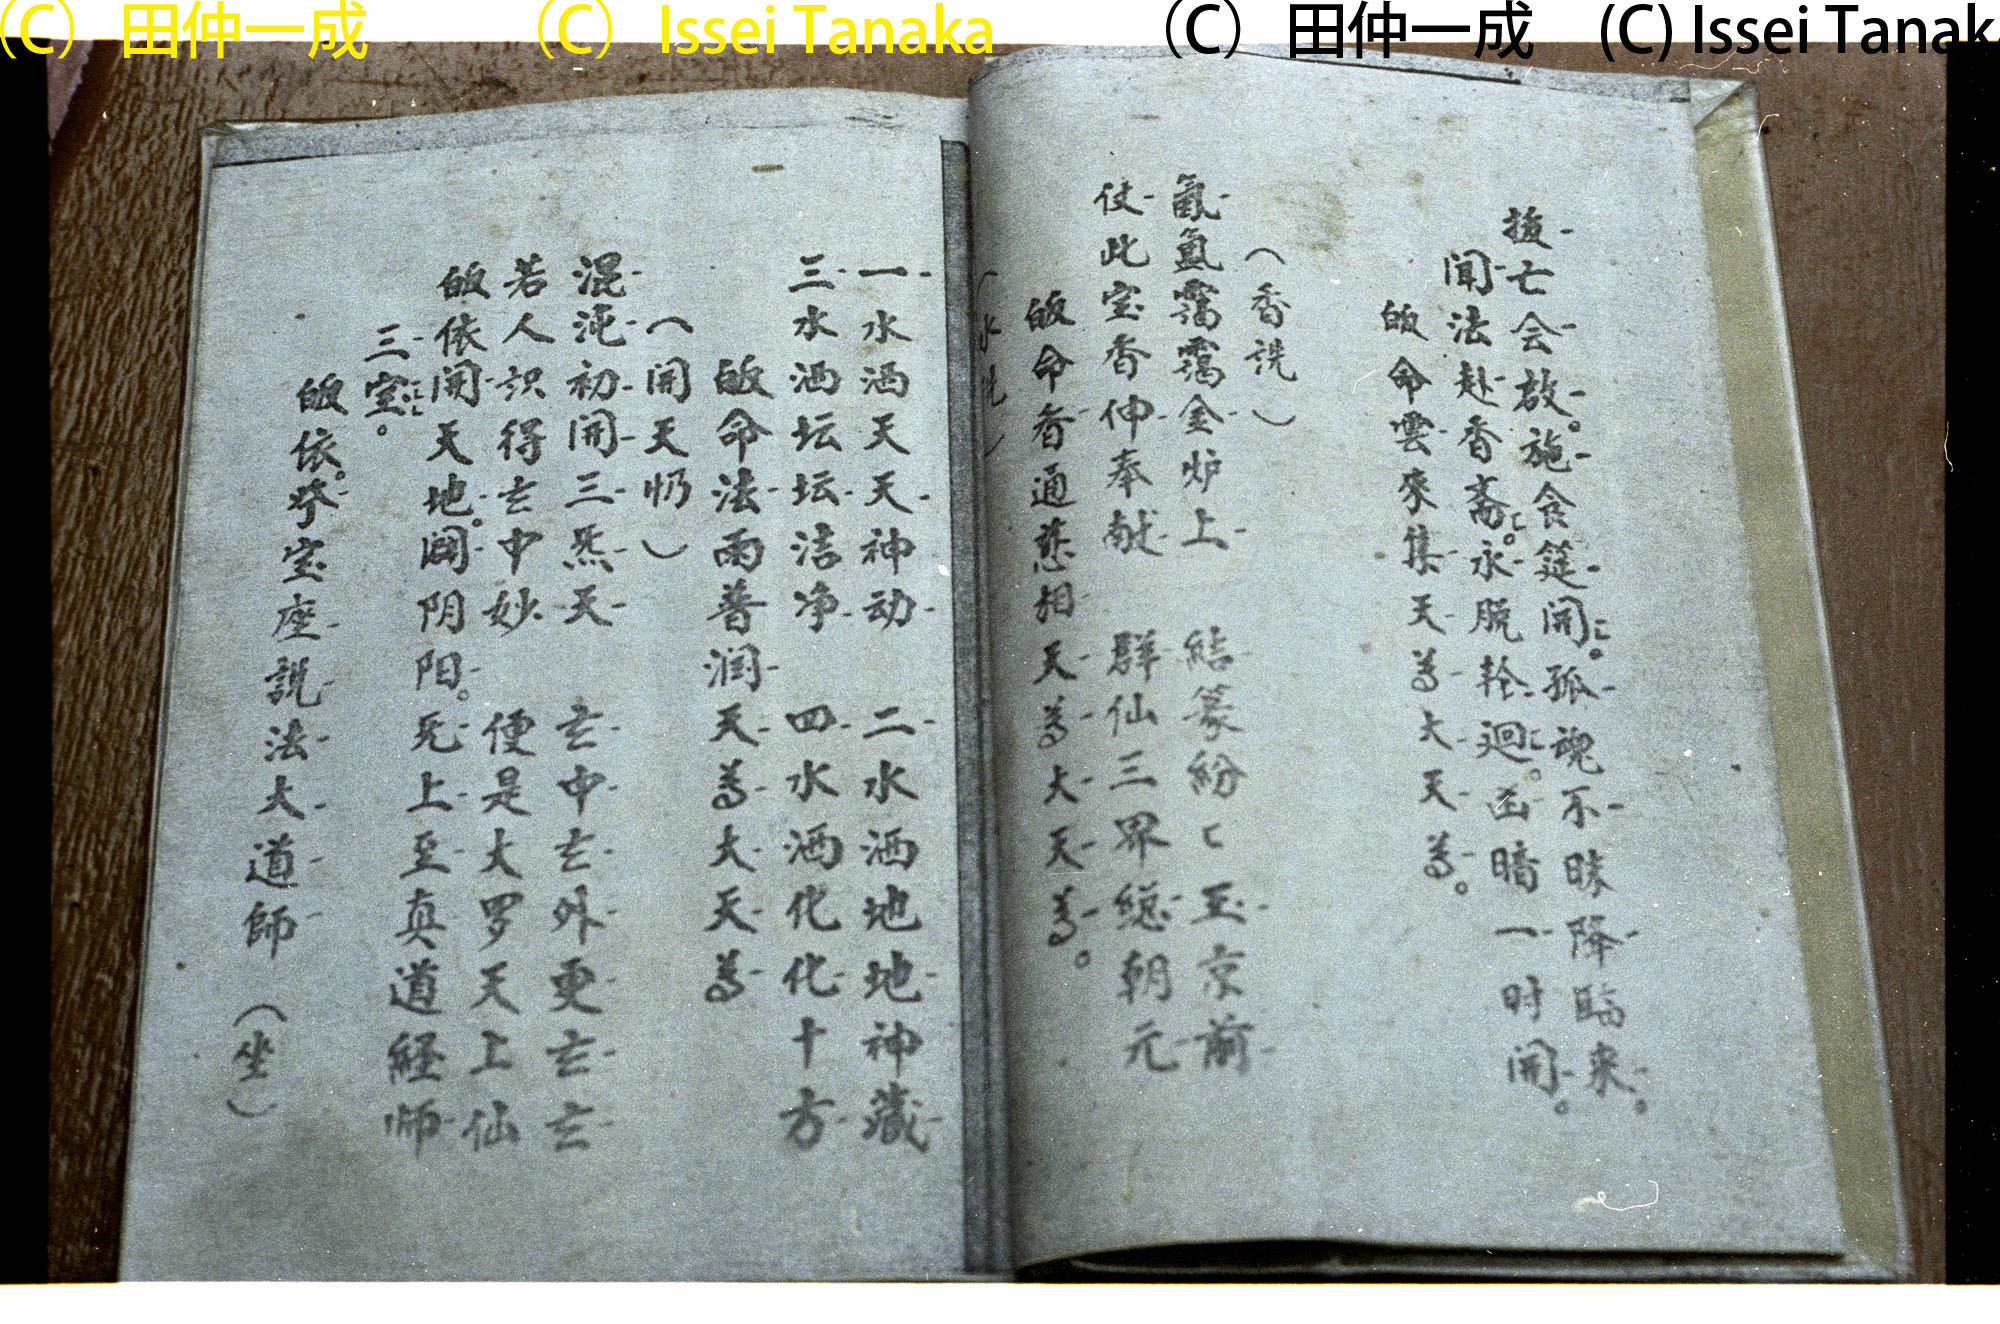 (C) 田仲一成 (C) Issei Tanaka (C) 田仲一成 (C) Issei Tanak
拔亡会啟。施食筵開ㄷ。孤魂不昧降臨来。
聞法赴香斋ㄷ。永脱轮迴ㄷ。幽暗一时開。
皈命雲來集天尊大天尊。
(香洗)
氤氲靄靄金炉上 結篆紛ㄷ玉京前
仗此宝香伸奉献 群仙三界総朝元
皈命香通慈相天尊大天尊。
(水洗)
一水洒天天神动 二水洒地地神藏
三水洒坛坛洁净 四水洒化化十方
皈命法雨普润天尊大天尊
(開天忉)
混沌初開三炁天 玄中玄外更玄玄
若人识得玄中妙 便是大罗天上仙
皈依開天地。闢阴阳。无上至真道経师
三宝ㄷㄷ。
皈依。登宝座説法大道師 (坐)